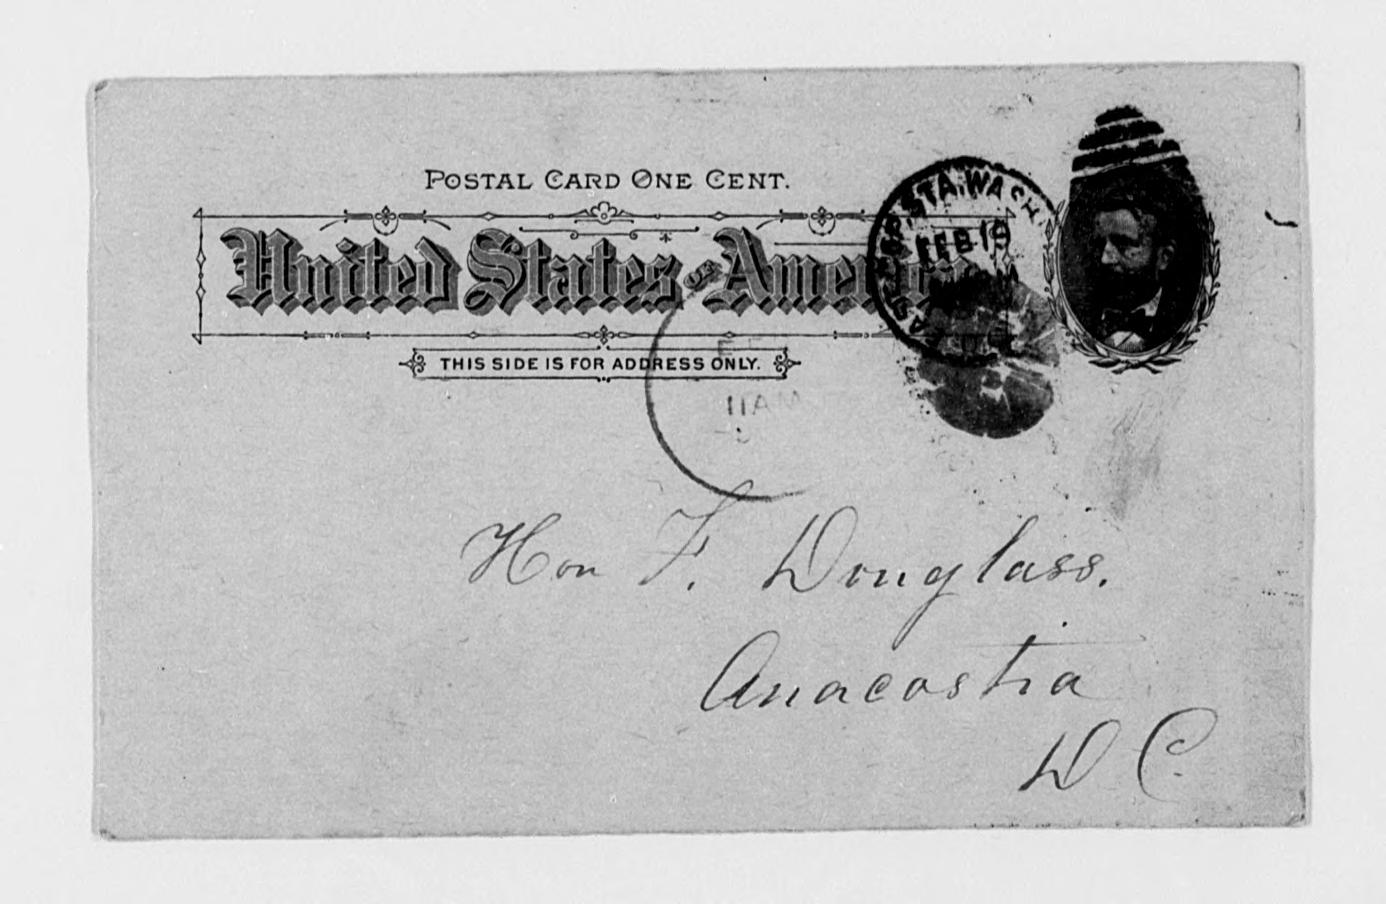 POSTAL CARD ONE CENT.
United States of America
THIS SIDE IS FOR ADDRESS ONLY.
STA. WASH
FEB 19
11 AM
Hon F. Douglass.
Anacostia
D C.